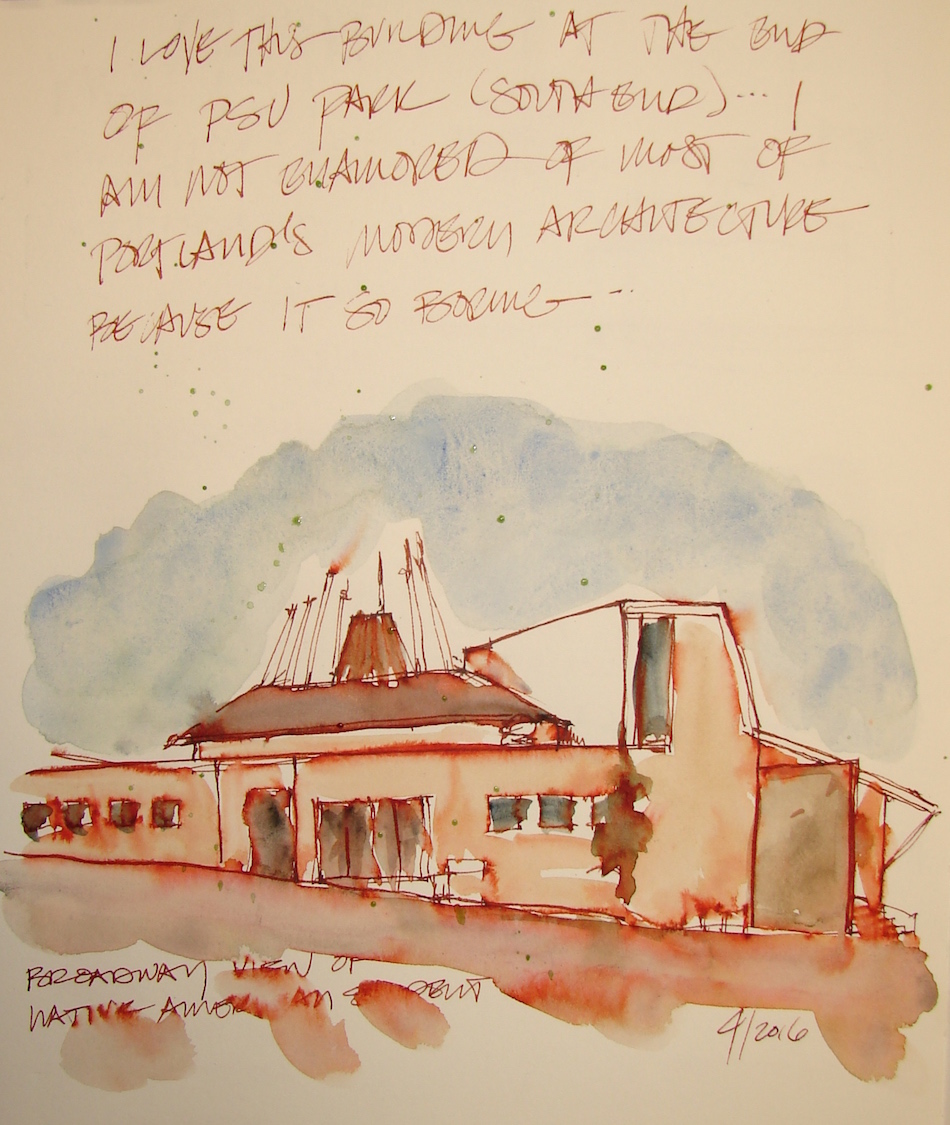 I LOVE THIS BUILDING AT THE END
OF PSU PARK (SOUTH END)... I
AM NOT ENAMORED OF MOST OF
PORTLAND'S MODERN ARCHITECTURE
BECAUSE IT SO BORING...
BROADWAY VIEW OF
NATIVE AMERICAN STUDENT
4/2016